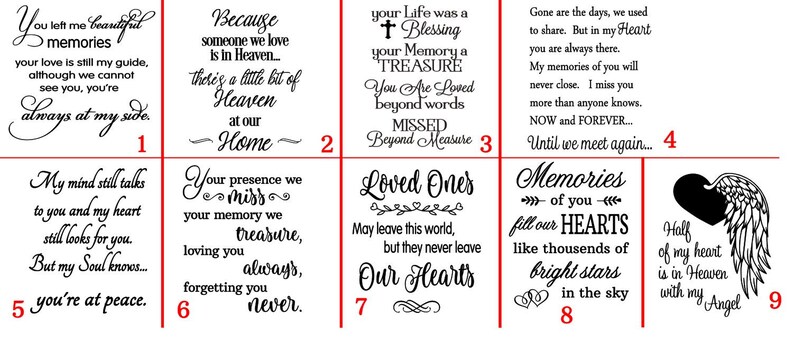 You left me beautiful
memories
your love is still my guide,
although we cannot
see you, you're
always at my side.
1
Because
someone we love
is in Heaven...
there's a little bit of
Heaven
at our
Home
2
your Life was a
Blessing
your Memory a
TREASURE
You Are Loved
beyond words
MISSED
Beyond Measure
3
Gone are the days, we used
to share. But in my Heart
you are always there.
My memories of you will
never close. I miss you
more than anyone knows.
NOW and FOREVER...
Until we meet again...
4
My mind still talks
to you and my heart
still looks for you.
But my Soul knows...
you're at peace.
5
Your presence we
miss
your memory we
treasure,
loving you
always,
forgetting you
never.
6
Loved Ones
May leave this world,
but they never leave
Our Hearts
7
Memories
of you
fill our HEARTS
like thousands of
bright stars
in the sky
8
Half
of my heart
is in Heaven
with my
Angel
9